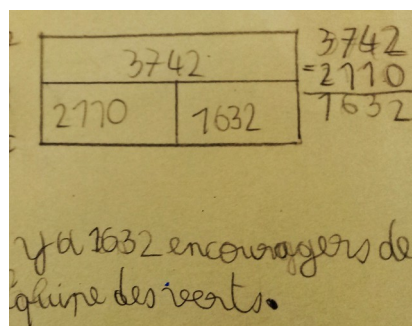 3742
2110 1632
3742
-2110
1632
y a 1632 encouragers de
équipe des verts.